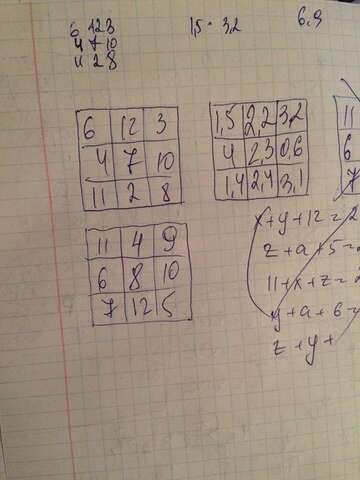 6 12 3
4 7 10
11 2 8
1,5 3,2
6,9
6 12 3
4 7 10
11 2 8
1,5 2,2 3,2
4 2,3 0,6
1,4 2,4 3,1
11
6
7
11 4 9
6 8 10
7 12 5
x+y+12=2
z+a+5=
11+x+z=2
y+a+6
z+y+